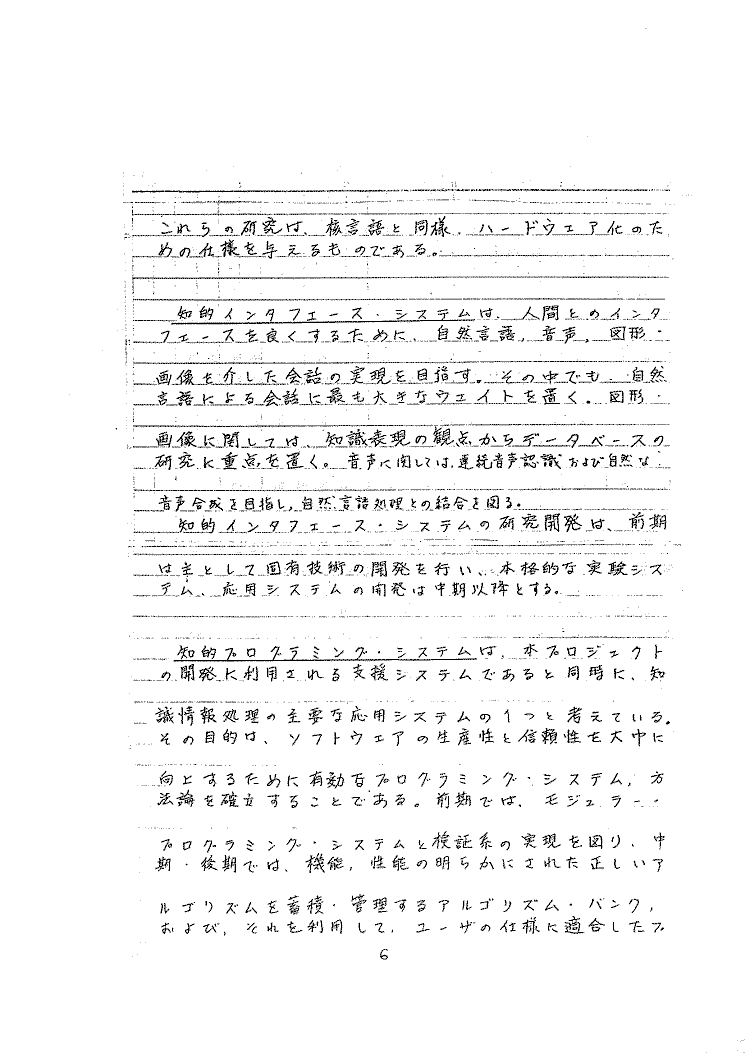 これらの研究は、核言語と同様、ハードウェア化のた
めの仕様を与えるものである。
知的インタフェース・システムは、人間とのインタ
フェースを良くするために、自然言語，音声，図形・
画像を介した会話の実現を目指す。その中でも、自然
言語による会話に最も大きなウェイトを置く。図形・
画像に関しては、知識表現の観点からデータベースの
研究に重点を置く。音声に関しては，連続音声認識および自然な
音声合成を目指し，自然言語処理との結合を図る。
知的インタフェース・システムの研究開発は、前期
は主として固有技術の開発を行い、本格的な実験シス
テム、応用システムの開発は中期以降とする。
知的プログラミング・システムは、本プロジェクト
の開発に利用される支援システムであると同時に、知
識情報処理の主要な応用システムの1つと考えている。
その目的は、ソフトウェアの生産性と信頼性を大巾に
向上するために有効なプログラミング・システム，方
法論を確立することである。前期では、モジュラー・
プログラミング・システムと検証系の実現を図り、中
期・後期では、機能，性能の明らかにされた正しいア
ルゴリズムを蓄積・管理するアルゴリズム・バンク，
および，それを利用して，ユーザの仕様に適合したプ
6